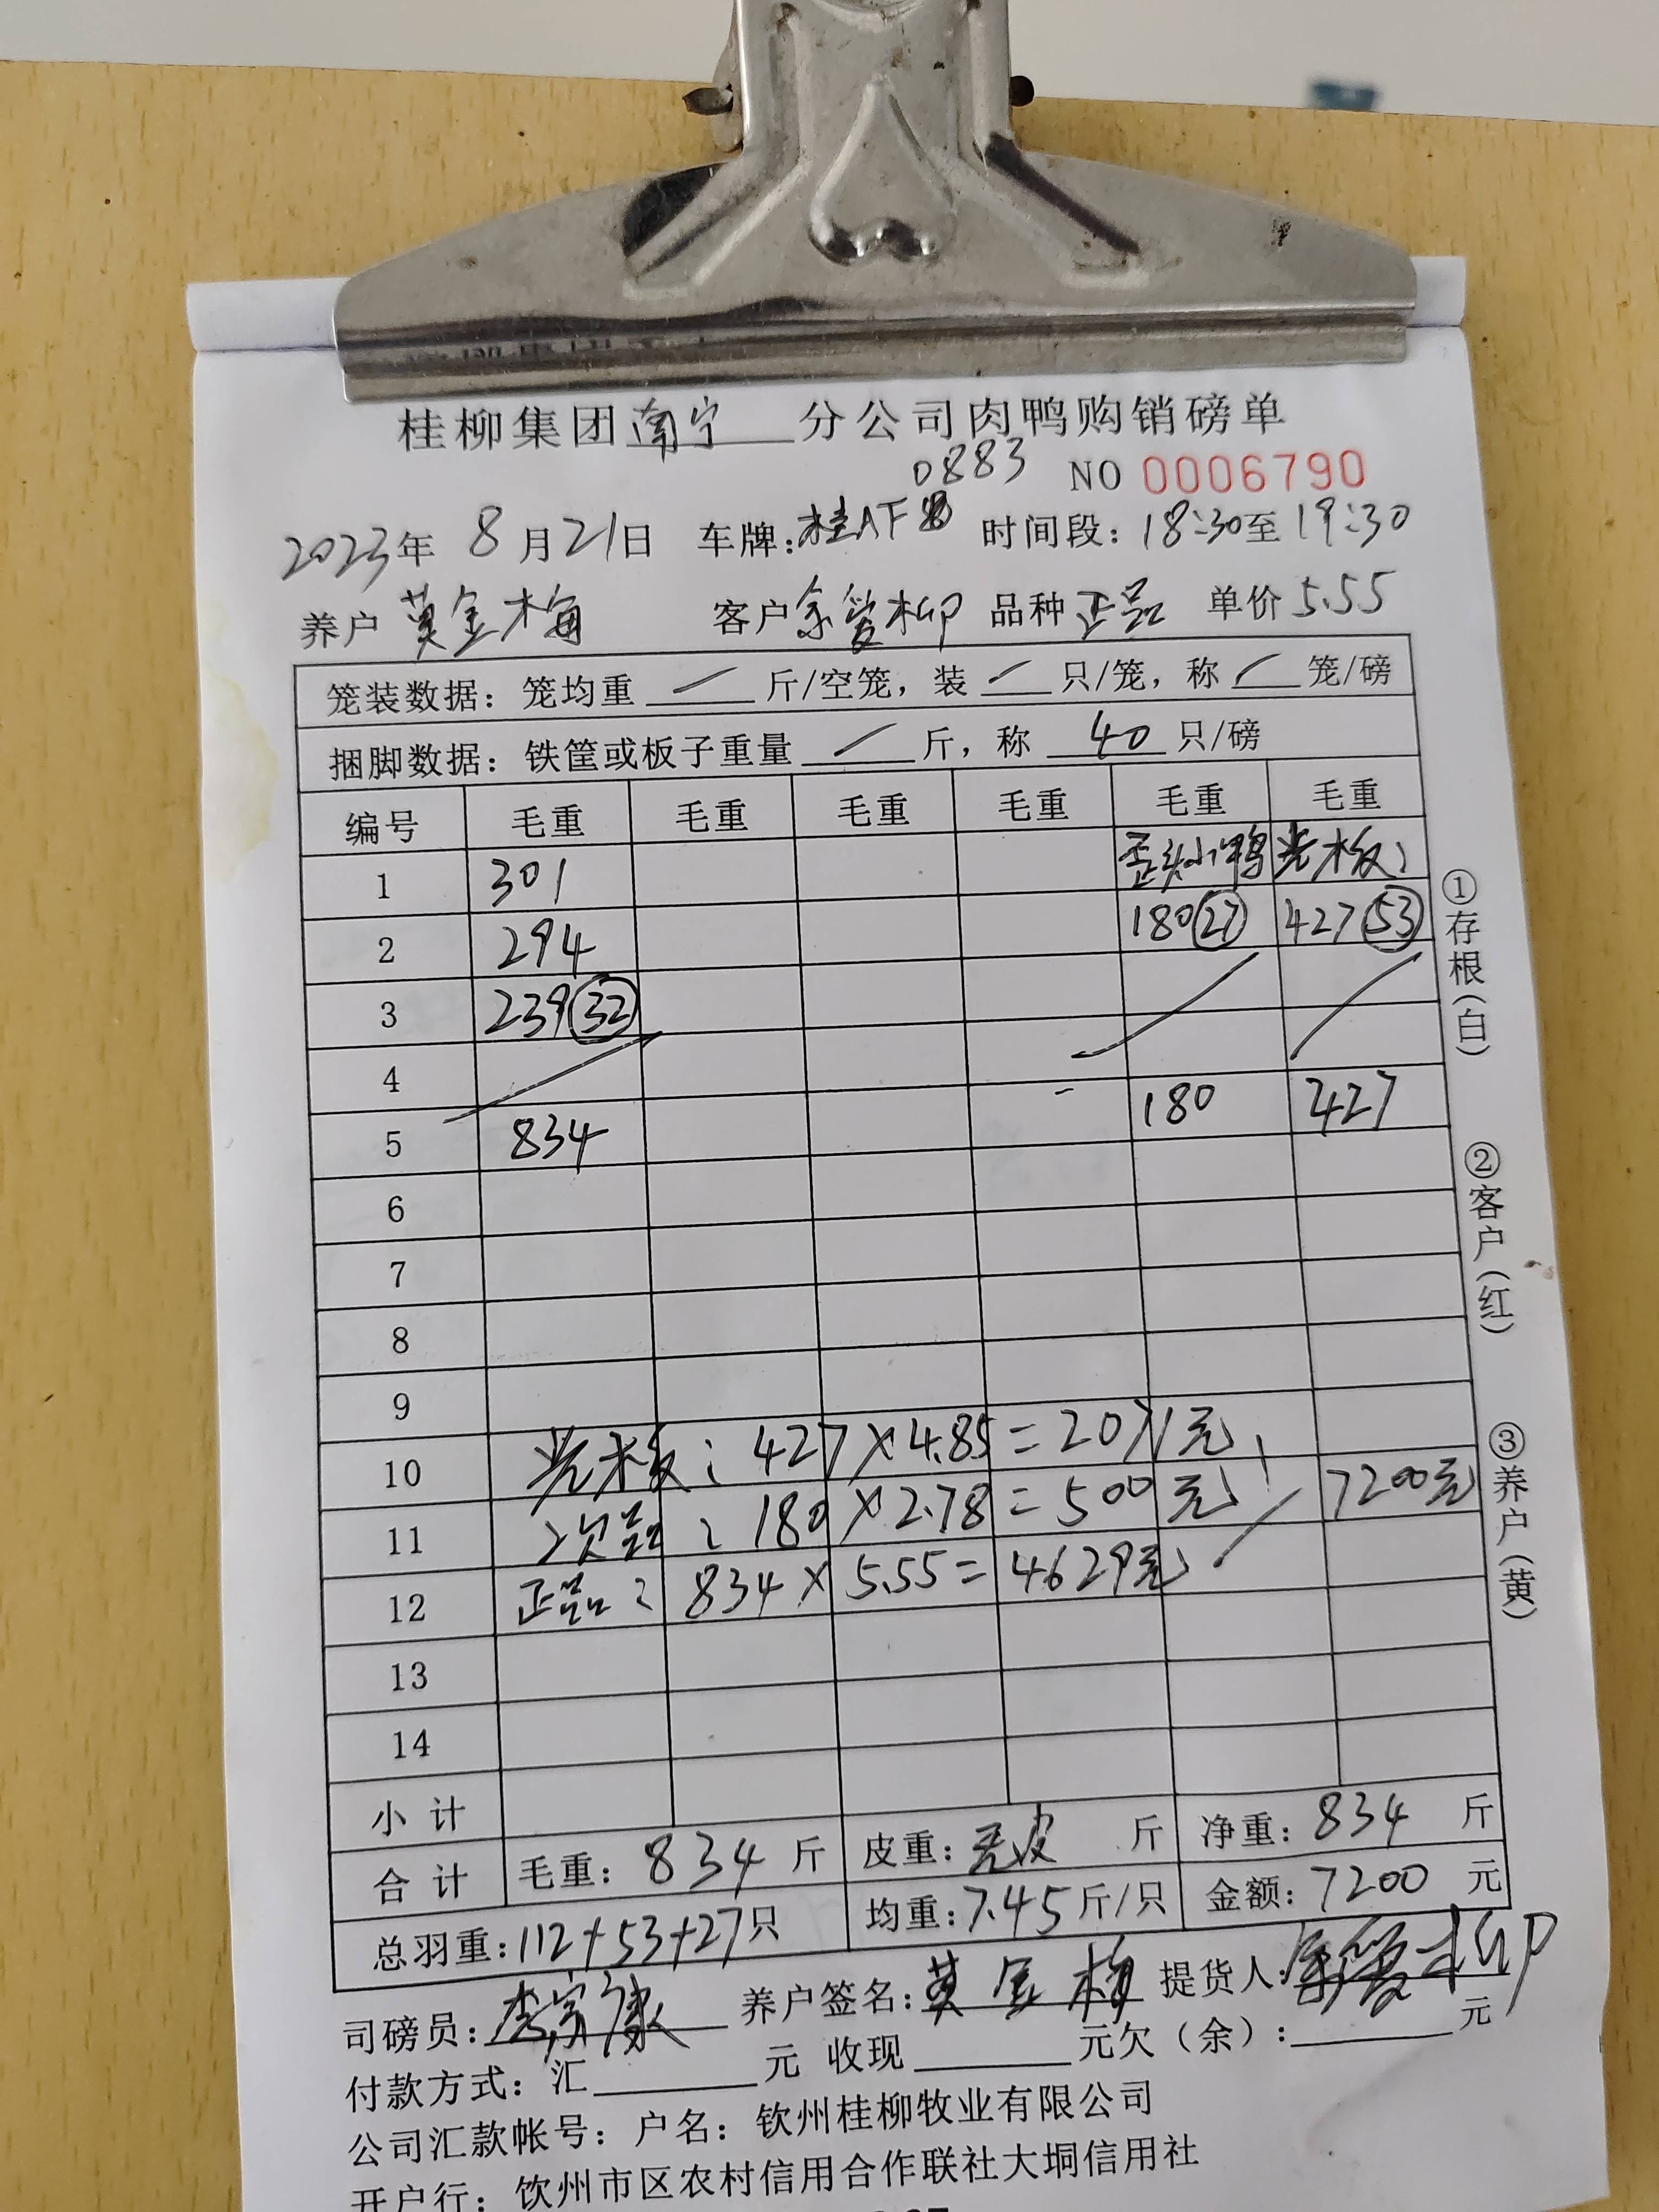 桂柳集团南宁分公司肉鸭购销磅单
0883 NO 0006790
2023年 8月21日 车牌:桂AF 时间段:18:30至19:30
养户 莫金梅 客户余爱柳 品种 正品 单价 5.55
笼装数据:笼均重 / 斤/空笼,装 / 只/笼,称 / 笼/磅
捆脚数据:铁筐或板子重量 / 斤,称 40 只/磅
编号 毛重 毛重 毛重 毛重 毛重 毛重
1 301 歪头小鸭 光板:
2 294 180(27) 427(53)
3 239(32)
4
5 834 180 427
6
7
8
9
10 光板:427×4.85=2071元
11 次品:180×2.78=500元 7200元
12 正品:834×5.55=4629元
13
14
小计
合计 毛重:834斤 皮重:无皮 斤 净重:834 斤
总羽重:112+53+27只 均重:7.45斤/只 金额:7200 元
司磅员: 养户签名:莫金梅 提货人:余爱柳
付款方式:汇 元 收现 元欠(余): 元
公司汇款帐号:户名:钦州桂柳牧业有限公司
开户行:钦州市区农村信用合作联社大垌信用社
①存根(白)
②客户(红)
③养户(黄)